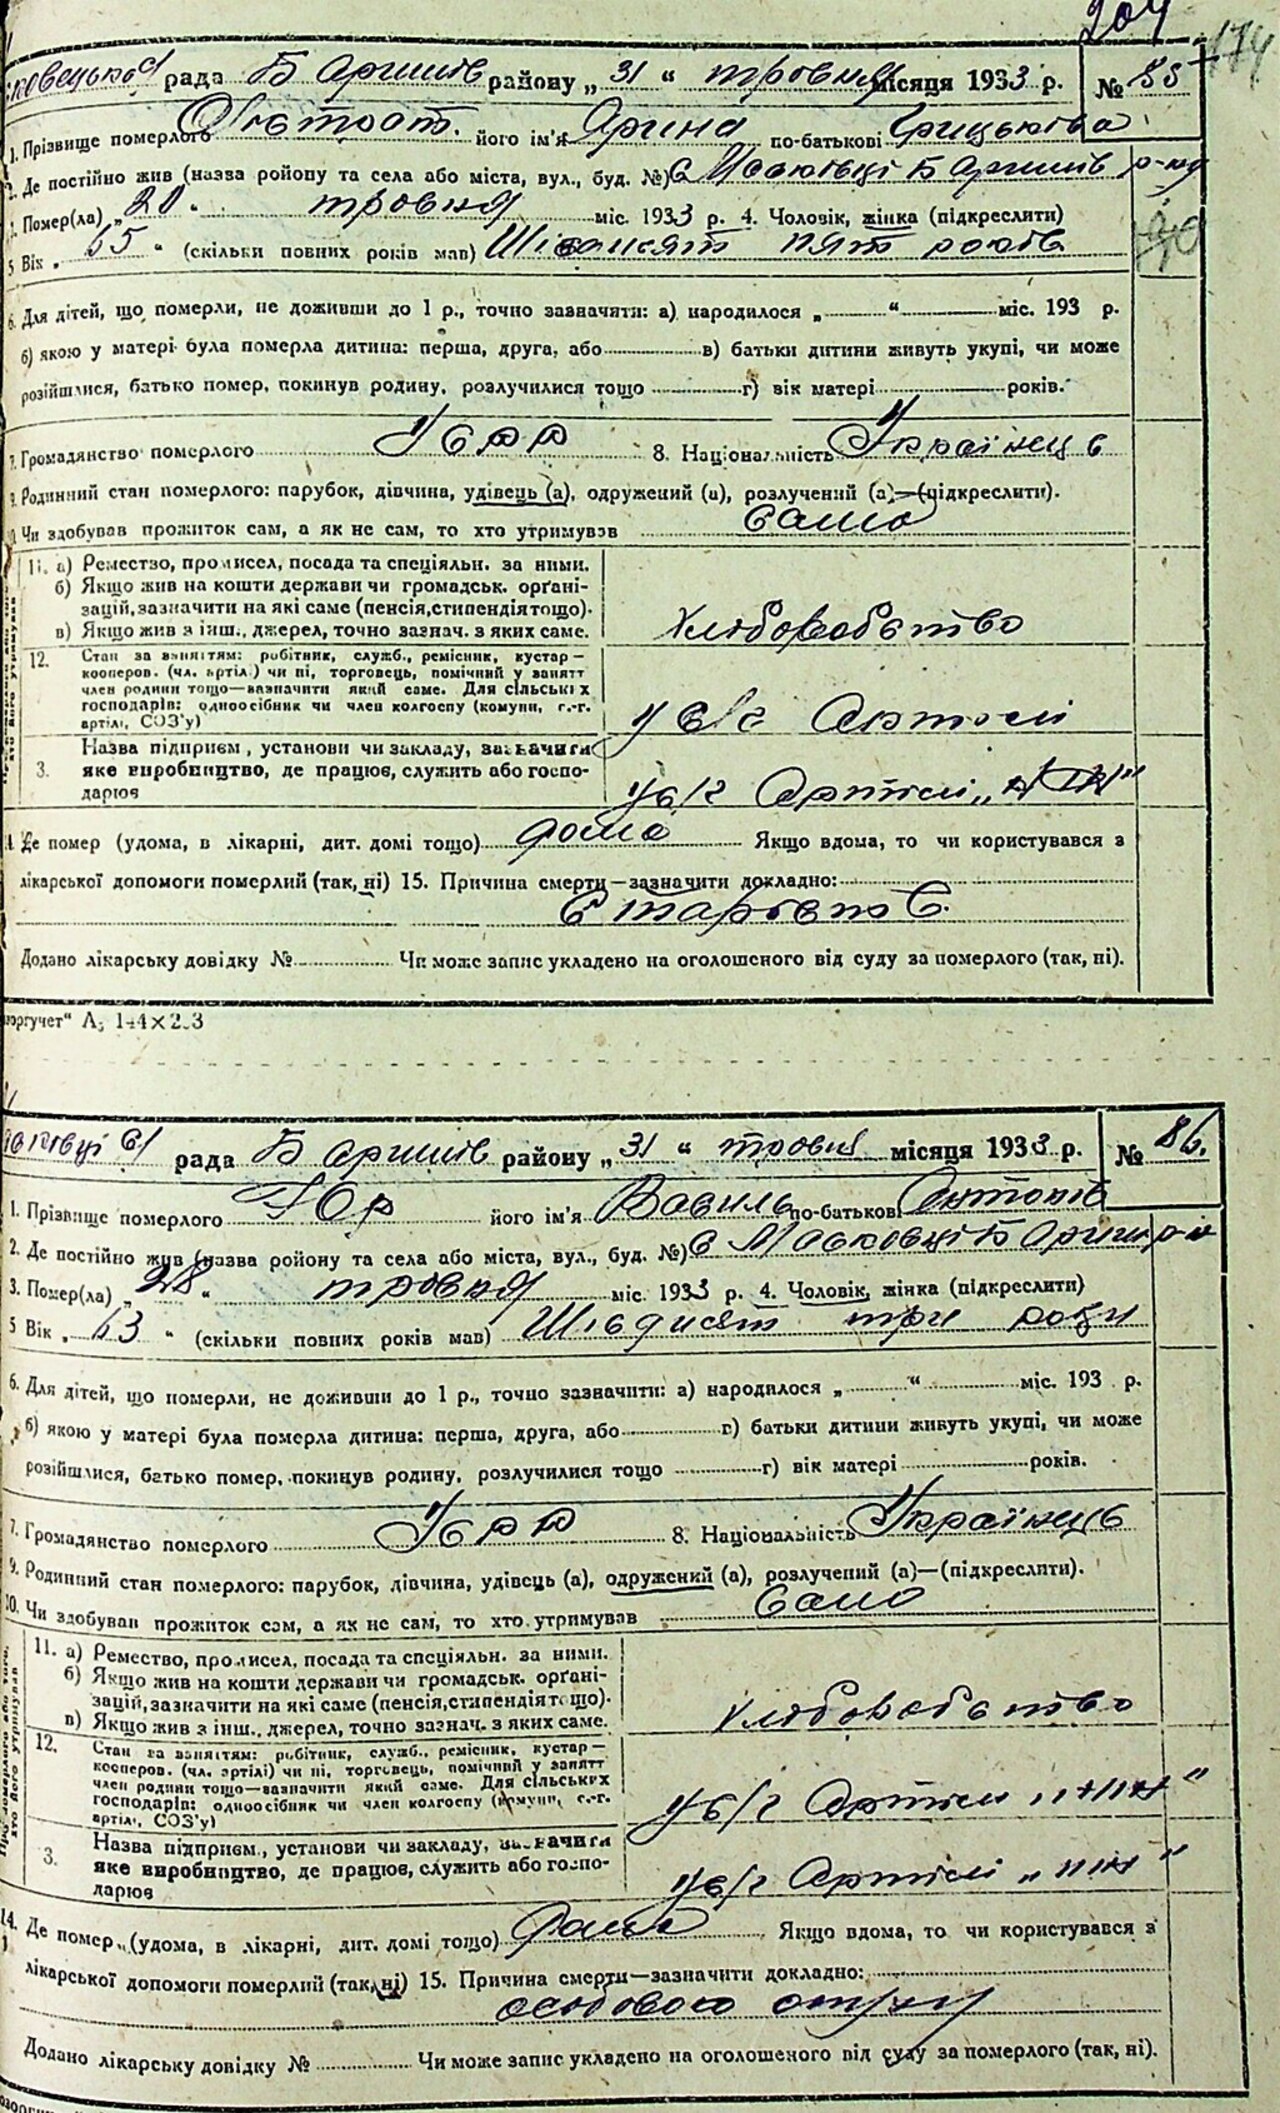 204
174
рада Б Аршшів району „31“ тровня місяця 1933 р. № 85
1. Прізвище померлого його ім'я Арина по-батькові Грицькова
2. Де постійно жив (назва ройону та села або міста, вул., буд. №) с Б Аршшів р-ну
3. Помер(ла) „20“ тровня міс. 1933 р. 4. Чоловік, жінка (підкреслити)
5 Вік „65“ (скільки повних років мав) Шісдисят пят років
6. Для дітей, що померли, не доживши до 1 р., точно зазначити: а) народилося „ “ міс. 193 р.
б) якою у матері була померла дитина: перша, друга, або в) батьки дитини живуть укупі, чи може
розійшлися, батько помер, покинув родину, розлучилися тощо г) вік матері років.
7. Громадянство померлого УСРР 8. Національність Українець
9. Родинний стан померлого: парубок, дівчина, удівець (а), одружений (а), розлучений (а)—(підкреслити).
10. Чи здобував прожиток сам, а як не сам, то хто утримував само
11. а) Ремество, промисел, посада та спеціяльн. за ними.
б) Якщо жив на кошти держави чи громадськ. орґані-
зацій, зазначити на які саме (пенсія, стипендія тощо).
в) Якщо жив з інш., джерел, точно зазнач. з яких саме.
хліборобство
12. Стан за заняттям: робітник, служб., ремісник, кустар—
кооперов. (чл. артілі) чи ні, торговець, помічний у занятт
член родини тощо—вазначити який саме. Для сільських
господарів: одноосібник чи член колгоспу (комуни, с.-г.
артілі, СОЗ'у)
у с/г Артілі
3. Назва підприєм., установи чи закладу, зазначити
яке виробництво, де працює, служить або госпо-
дарює
у с/г Артілі
14. Де помер (удома, в лікарні, дит. домі тощо) дома Якщо вдома, то чи користувався з
лікарської допомоги померлий (так, ні) 15. Причина смерти—зазначити докладно:
Старість
Додано лікарську довідку № Чи може запис укладено на оголошеного від суду за померлого (так, ні).
А5 144×203
рада Б Аршшів району „31“ тровня місяця 1933 р. № 86.
1. Прізвище померлого Юр його ім'я Василь по-батькові Антонів
2. Де постійно жив (назва ройону та села або міста, вул., буд. №) с Масковці Б Аршш р-н
3. Помер(ла) „28“ тровня міс. 1933 р. 4. Чоловік, жінка (підкреслити)
5 Вік „63“ (скільки повних років мав) Шісдисят три роки
6. Для дітей, що померли, не доживши до 1 р., точно зазначити: а) народилося „ “ міс. 193 р.
б) якою у матері була померла дитина: перша, друга, або в) батьки дитини живуть укупі, чи може
розійшлися, батько помер, покинув родину, розлучилися тощо г) вік матері років.
7. Громадянство померлого УСРР 8. Національність Українець
9. Родинний стан померлого: парубок, дівчина, удівець (а), одружений (а), розлучений (а)—(підкреслити).
10. Чи здобував прожиток сам, а як не сам, то хто утримував само
11. а) Ремество, промисел, посада та спеціяльн. за ними.
б) Якщо жив на кошти держави чи громадськ. орґані-
зацій, зазначити на які саме (пенсія, стипендія тощо).
в) Якщо жив з інш., джерел, точно зазнач. з яких саме.
хліборобство
12. Стан за заняттям: робітник, служб., ремісник, кустар—
кооперов. (чл. артілі) чи ні, торговець, помічний у занятт
член родини тощо—вазначити який саме. Для сільських
господарів: одноосібник чи член колгоспу (комуни, с.-г.
артілі, СОЗ'у)
у с/г Артілі
3. Назва підприєм., установи чи закладу, зазначити
яке виробництво, де працює, служить або госпо-
дарює
у с/г Артілі
14. Де помер (удома, в лікарні, дит. домі тощо) дома Якщо вдома, то чи користувався з
лікарської допомоги померлий (так, ні) 15. Причина смерти—зазначити докладно:
Додано лікарську довідку № Чи може запис укладено на оголошеного від суду за померлого (так, ні).